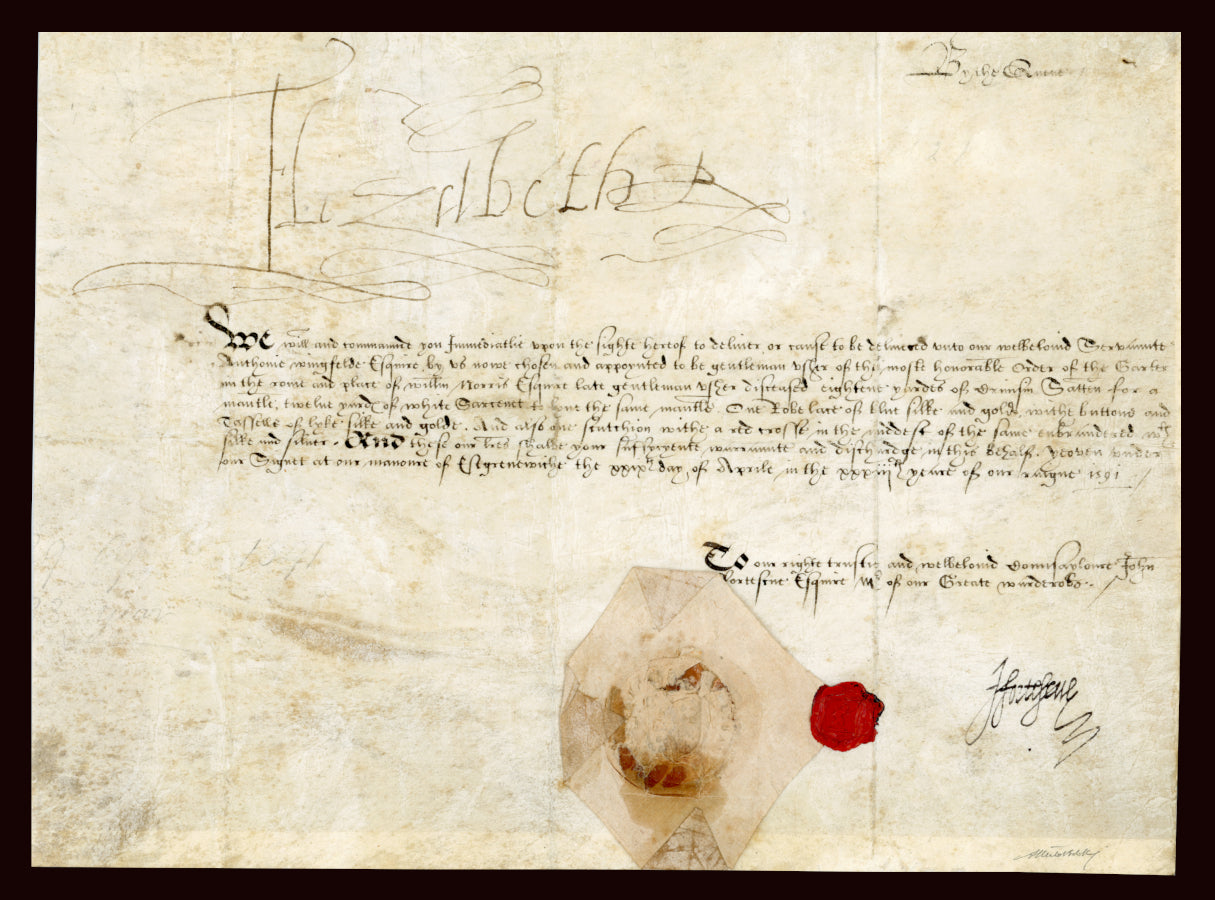 By the Quene
Elizabeth R
We will and commaunde you Immediatlie vpon the sighte hereof to deliuer or cause to be deliuered vnto our welbeloued Servaunte
Anthonie wingfelde Esquire, by vs nowe chosen and appoynted to be gentleman vsher of the moste honorable Order of the Garter
in the rome and place of willm Norris Esquire late gentleman vsher disceased eightene yardes of Crimsin Satten for a
mantle, twelue yardes of white Sarcenet to lyne the same mantle. One Robe lace of blue silke and golde, withe buttons and
Tasselle of lyke silke and golde. And also one scutchion withe a red crosse in the middest of the same enbraudered wth
silke and siluer. And these our lres shalbe your sufficyente warraunte and dischardge in this behalf. yeoven vnder
our Signet at our manoure of Estgrenewiche the xxixth day of Aprile in the xxxiiith yeare of our raigne 1591
To our right trustie and welbeloued Counsaylour John
fortescue Esquire Mr of our Greate warderobe.
Jfortescue